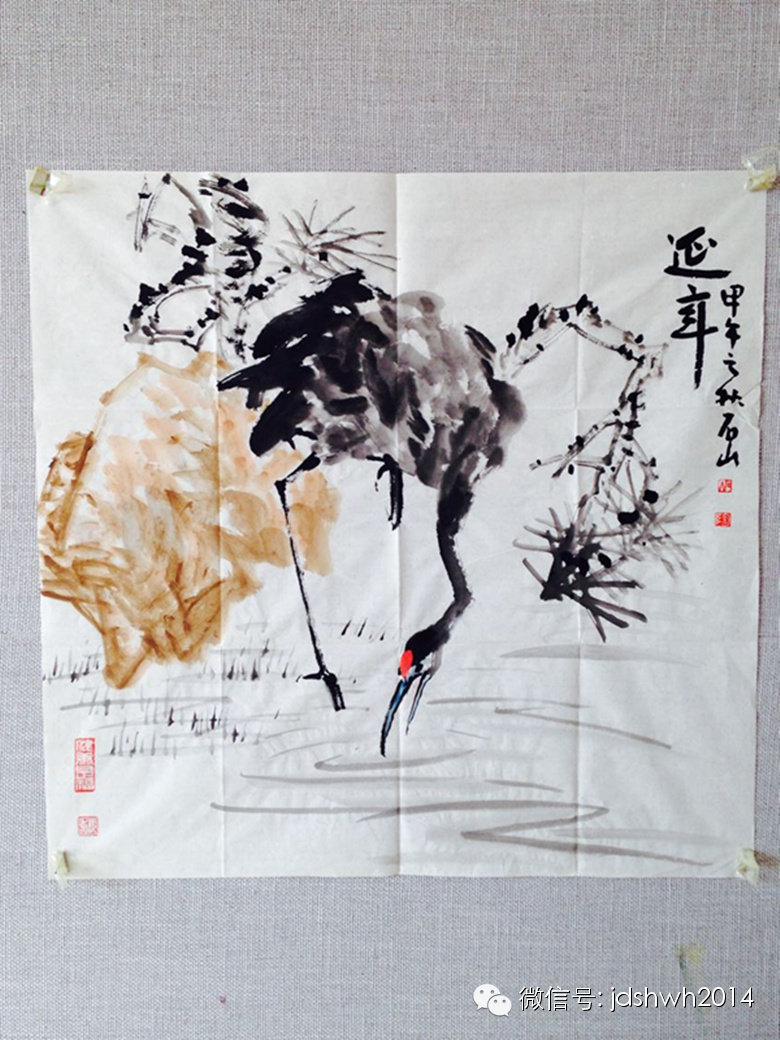 延年
甲午之秋石山
微信号: jdshwh2014